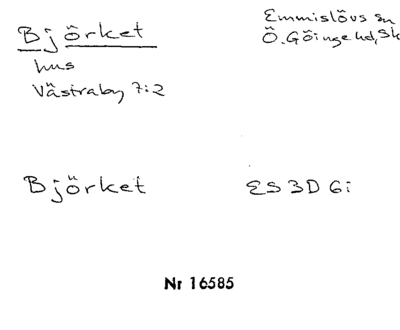 Björket
hus
Västraby 7:2
Emmislövs sn
Ö. Göinge hd, Sk
Björket
ES 3D 6i
Nr 16585